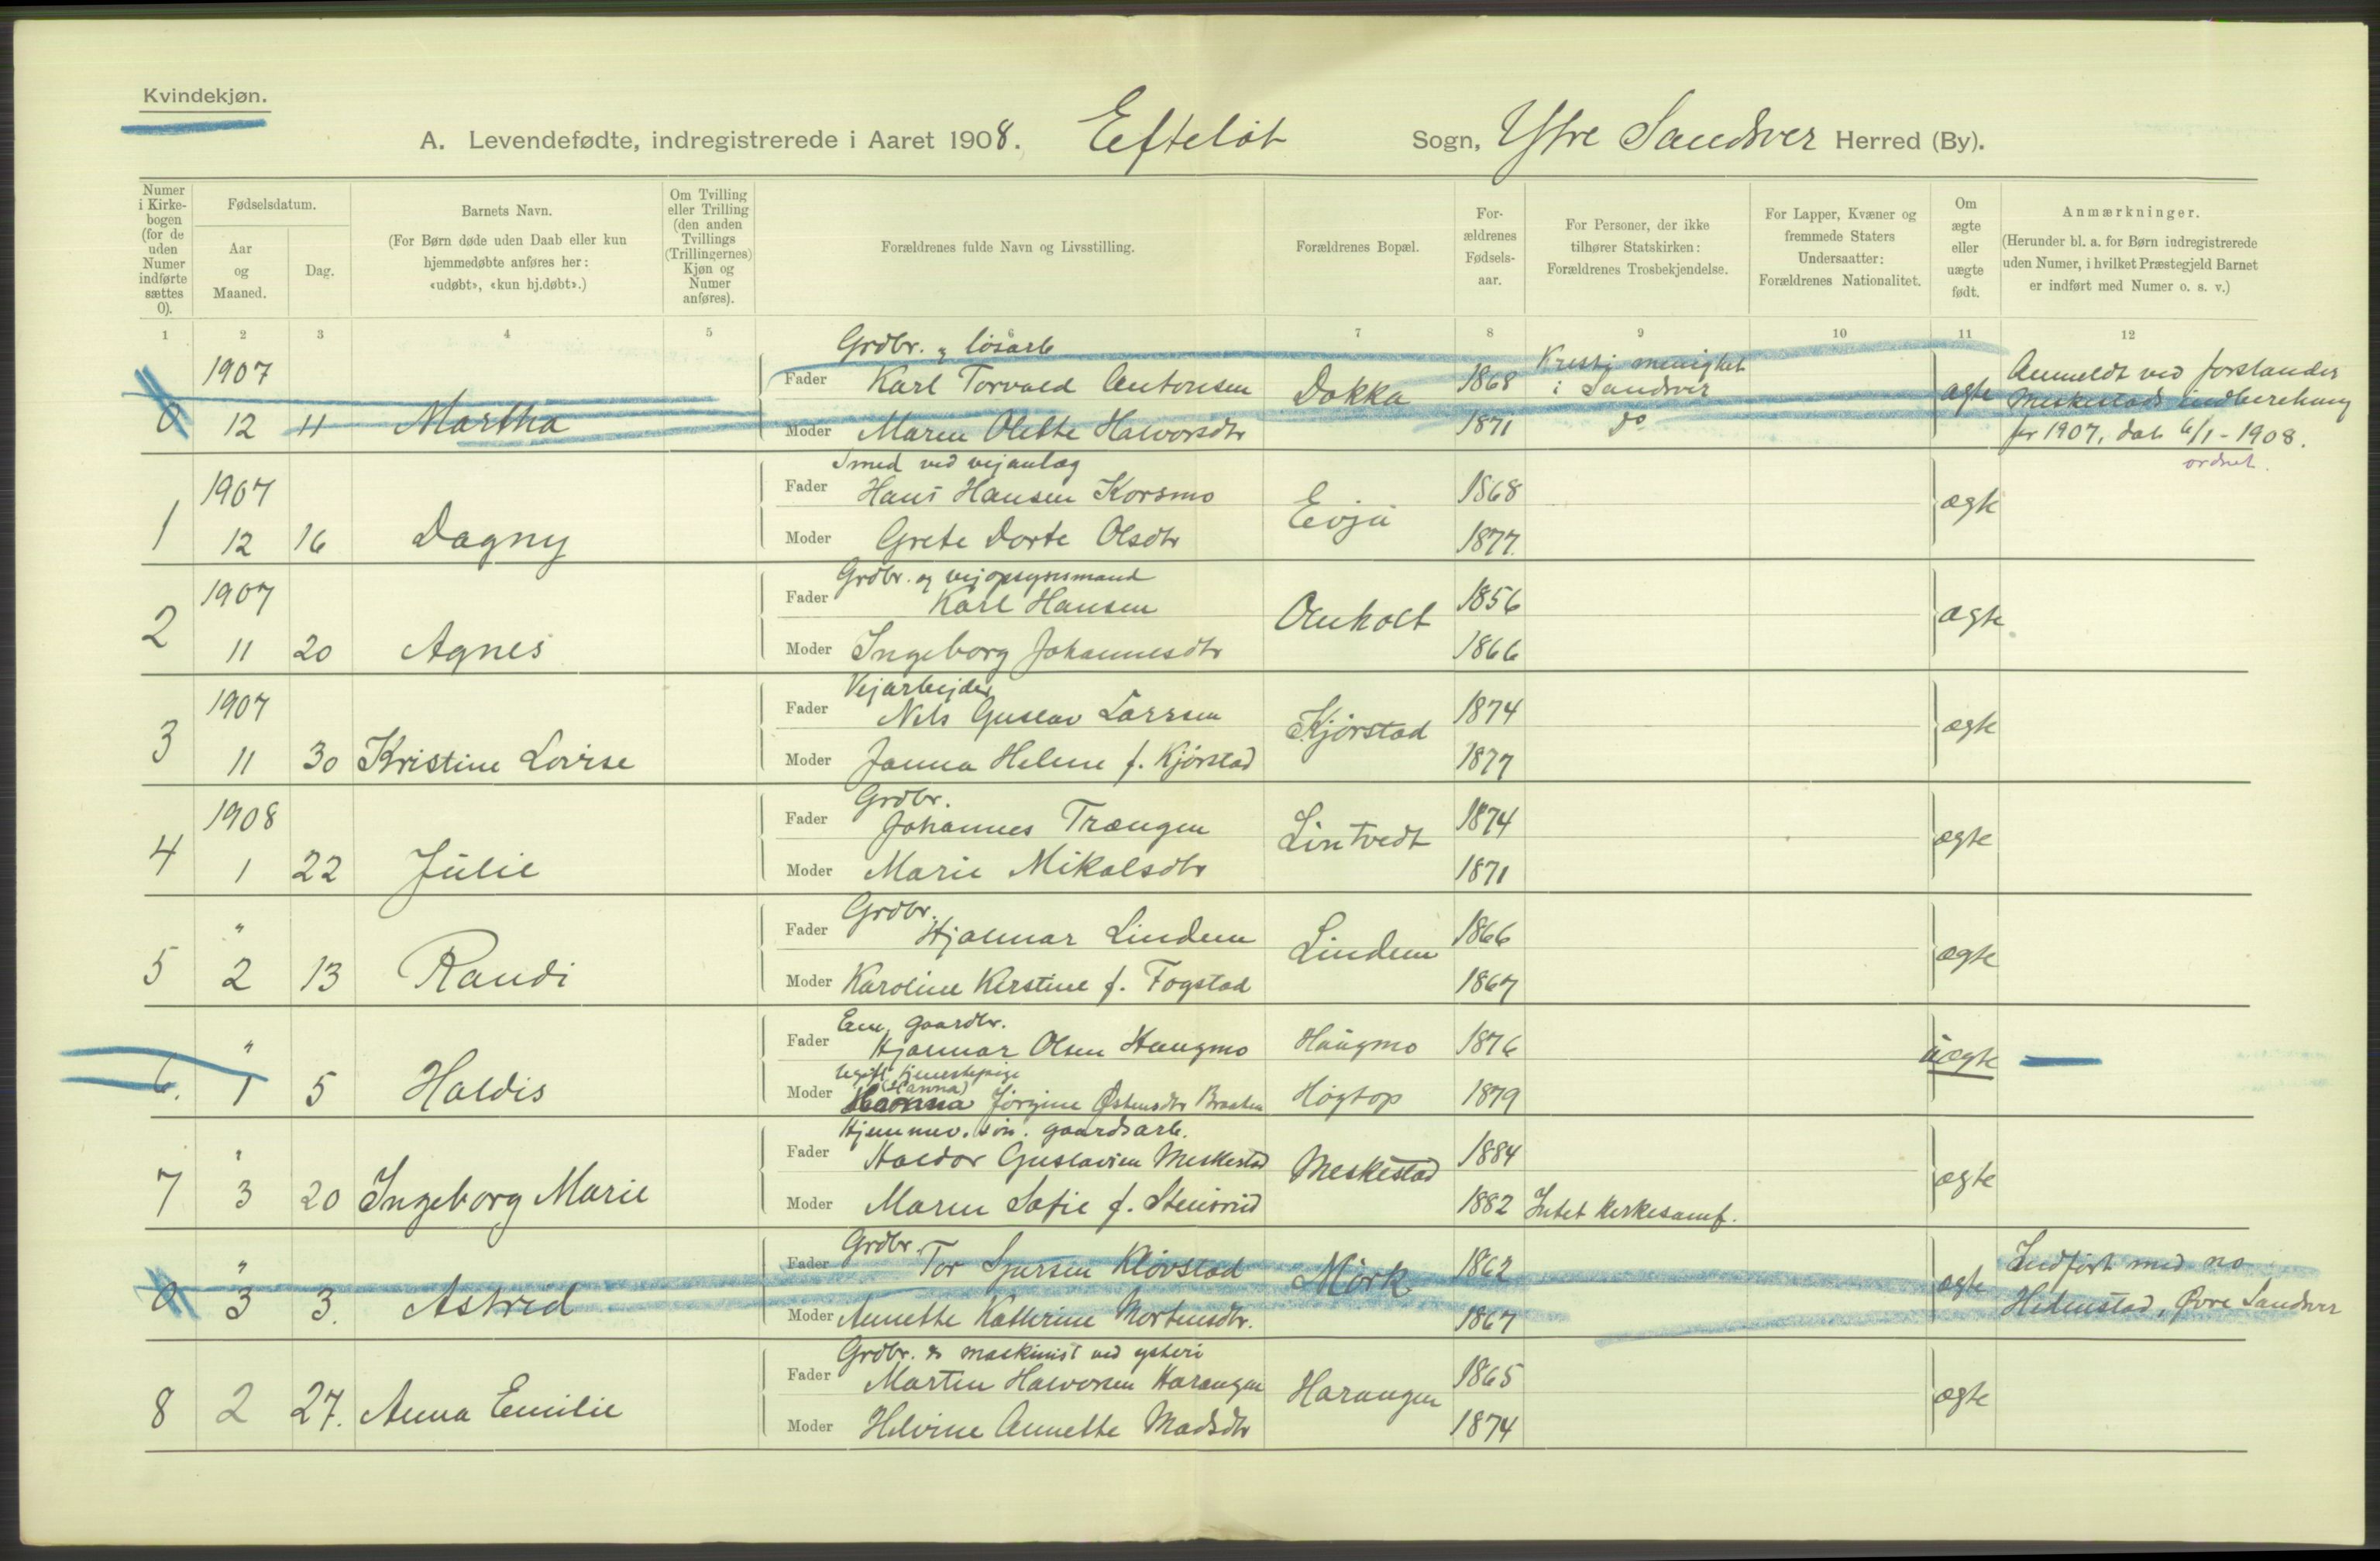 Kvindekjøn.
A. Levendefødte, indregistrerede i Aaret 1908. Efteløt Sogn, Ytre Sandsver Herred (By).
Numer i Kirke-bogen (for de uden Numer indførte sættes 0).
Fødselsdatum.
Aar og Maaned.
Dag.
Barnets Navn.
(For Børn døde uden Daab eller kun hjemmedøbte anføres her: «udøbt», «kun hj.døbt».)
Om Tvilling eller Trilling (den anden Tvillings (Trillingernes) Kjøn og Numer anføres).
Forældrenes fulde Navn og Livsstilling.
Forældrenes Bopæl.
For-ældrenes Fødsels-aar.
For Personer, der ikke tilhører Statskirken: Forældrenes Trosbekjendelse.
For Lapper, Kvæner og fremmede Staters Undersaatter: Forældrenes Nationalitet.
Om ægte eller uægte født.
Anmærkninger.
(Herunder bl. a. for Børn indregistrerede uden Numer, i hvilket Præstegjeld Barnet er indført med Numer o. s. v.)
1 2 3 4 5 6 7 8 9 10 11 12
Grdbr. & løsarb
1907 Fader Karl Torvald Antonsen Dokka 1868 Kristi menighet i Sandsver ægte Anmeldt ved forstander
0 12 11 Martha Moder Maren Olette Halvorsdtr 1871 do Meskestads indberetning
for 1907, dat. 6/1-1908.
ordnet.
Smed ved vejanlæg
1907 Fader Hans Hansen Korsmo Evju 1868 ægte
1 12 16 Dagny Moder Grete Dorte Olsdtr 1877.
Grdbr. og vejopsynsmand
1907 Fader Karl Hansen Omholt 1856 ægte
2 11 20 Agnes Moder Ingeborg Johannesdtr 1866
Vejarbejder
1907 Fader Nils Gustav Larsen Kjørstad 1874 ægte
3 11 30 Kristine Lovise Moder Janna Helene f. Kjørstad 1877
Grdbr.
1908 Fader Johannes Trængen Lintvedt 1874 ægte
4 1 22 Julie Moder Marie Mikalsdtr 1871
Grdbr.
" Fader Hjalmar Lindem Lindem 1866 ægte
5 2 13 Randi Moder Karoline Kirstine f. Fogstad 1867
Em. gaardbr.
" Fader Hjalmar Olsen Haugmo Haugmo 1876 uægte
Ugift tjenestepige
(Hanna)
6. 1 5 Haldis Moder Hanna Jørgine Østensdtr Braaten Høgtop 1879
Hjemmev. søn. gaardsarb.
" Fader Haldor Gustavsen Meskestad Meskestad 1884 ægte
7 3 20 Ingeborg Marie Moder Maren Sofie f. Stensrud 1882 Intet kirkesamf.
Grdbr.
" Fader Tor Sjursen Kløvstad Mörk 1862 ægte Indført med no
0 3 3. Astrid Moder Annette Kathrine Mortensdtr. 1867 Hedenstad, Øvre Sandsver
Grdbr. & maskinist ved ysteri
Fader Martin Halvorsen Harangen Harangen 1865 ægte
8 2 27. Anna Emilie Moder Helvine Annette Madsdtr 1874